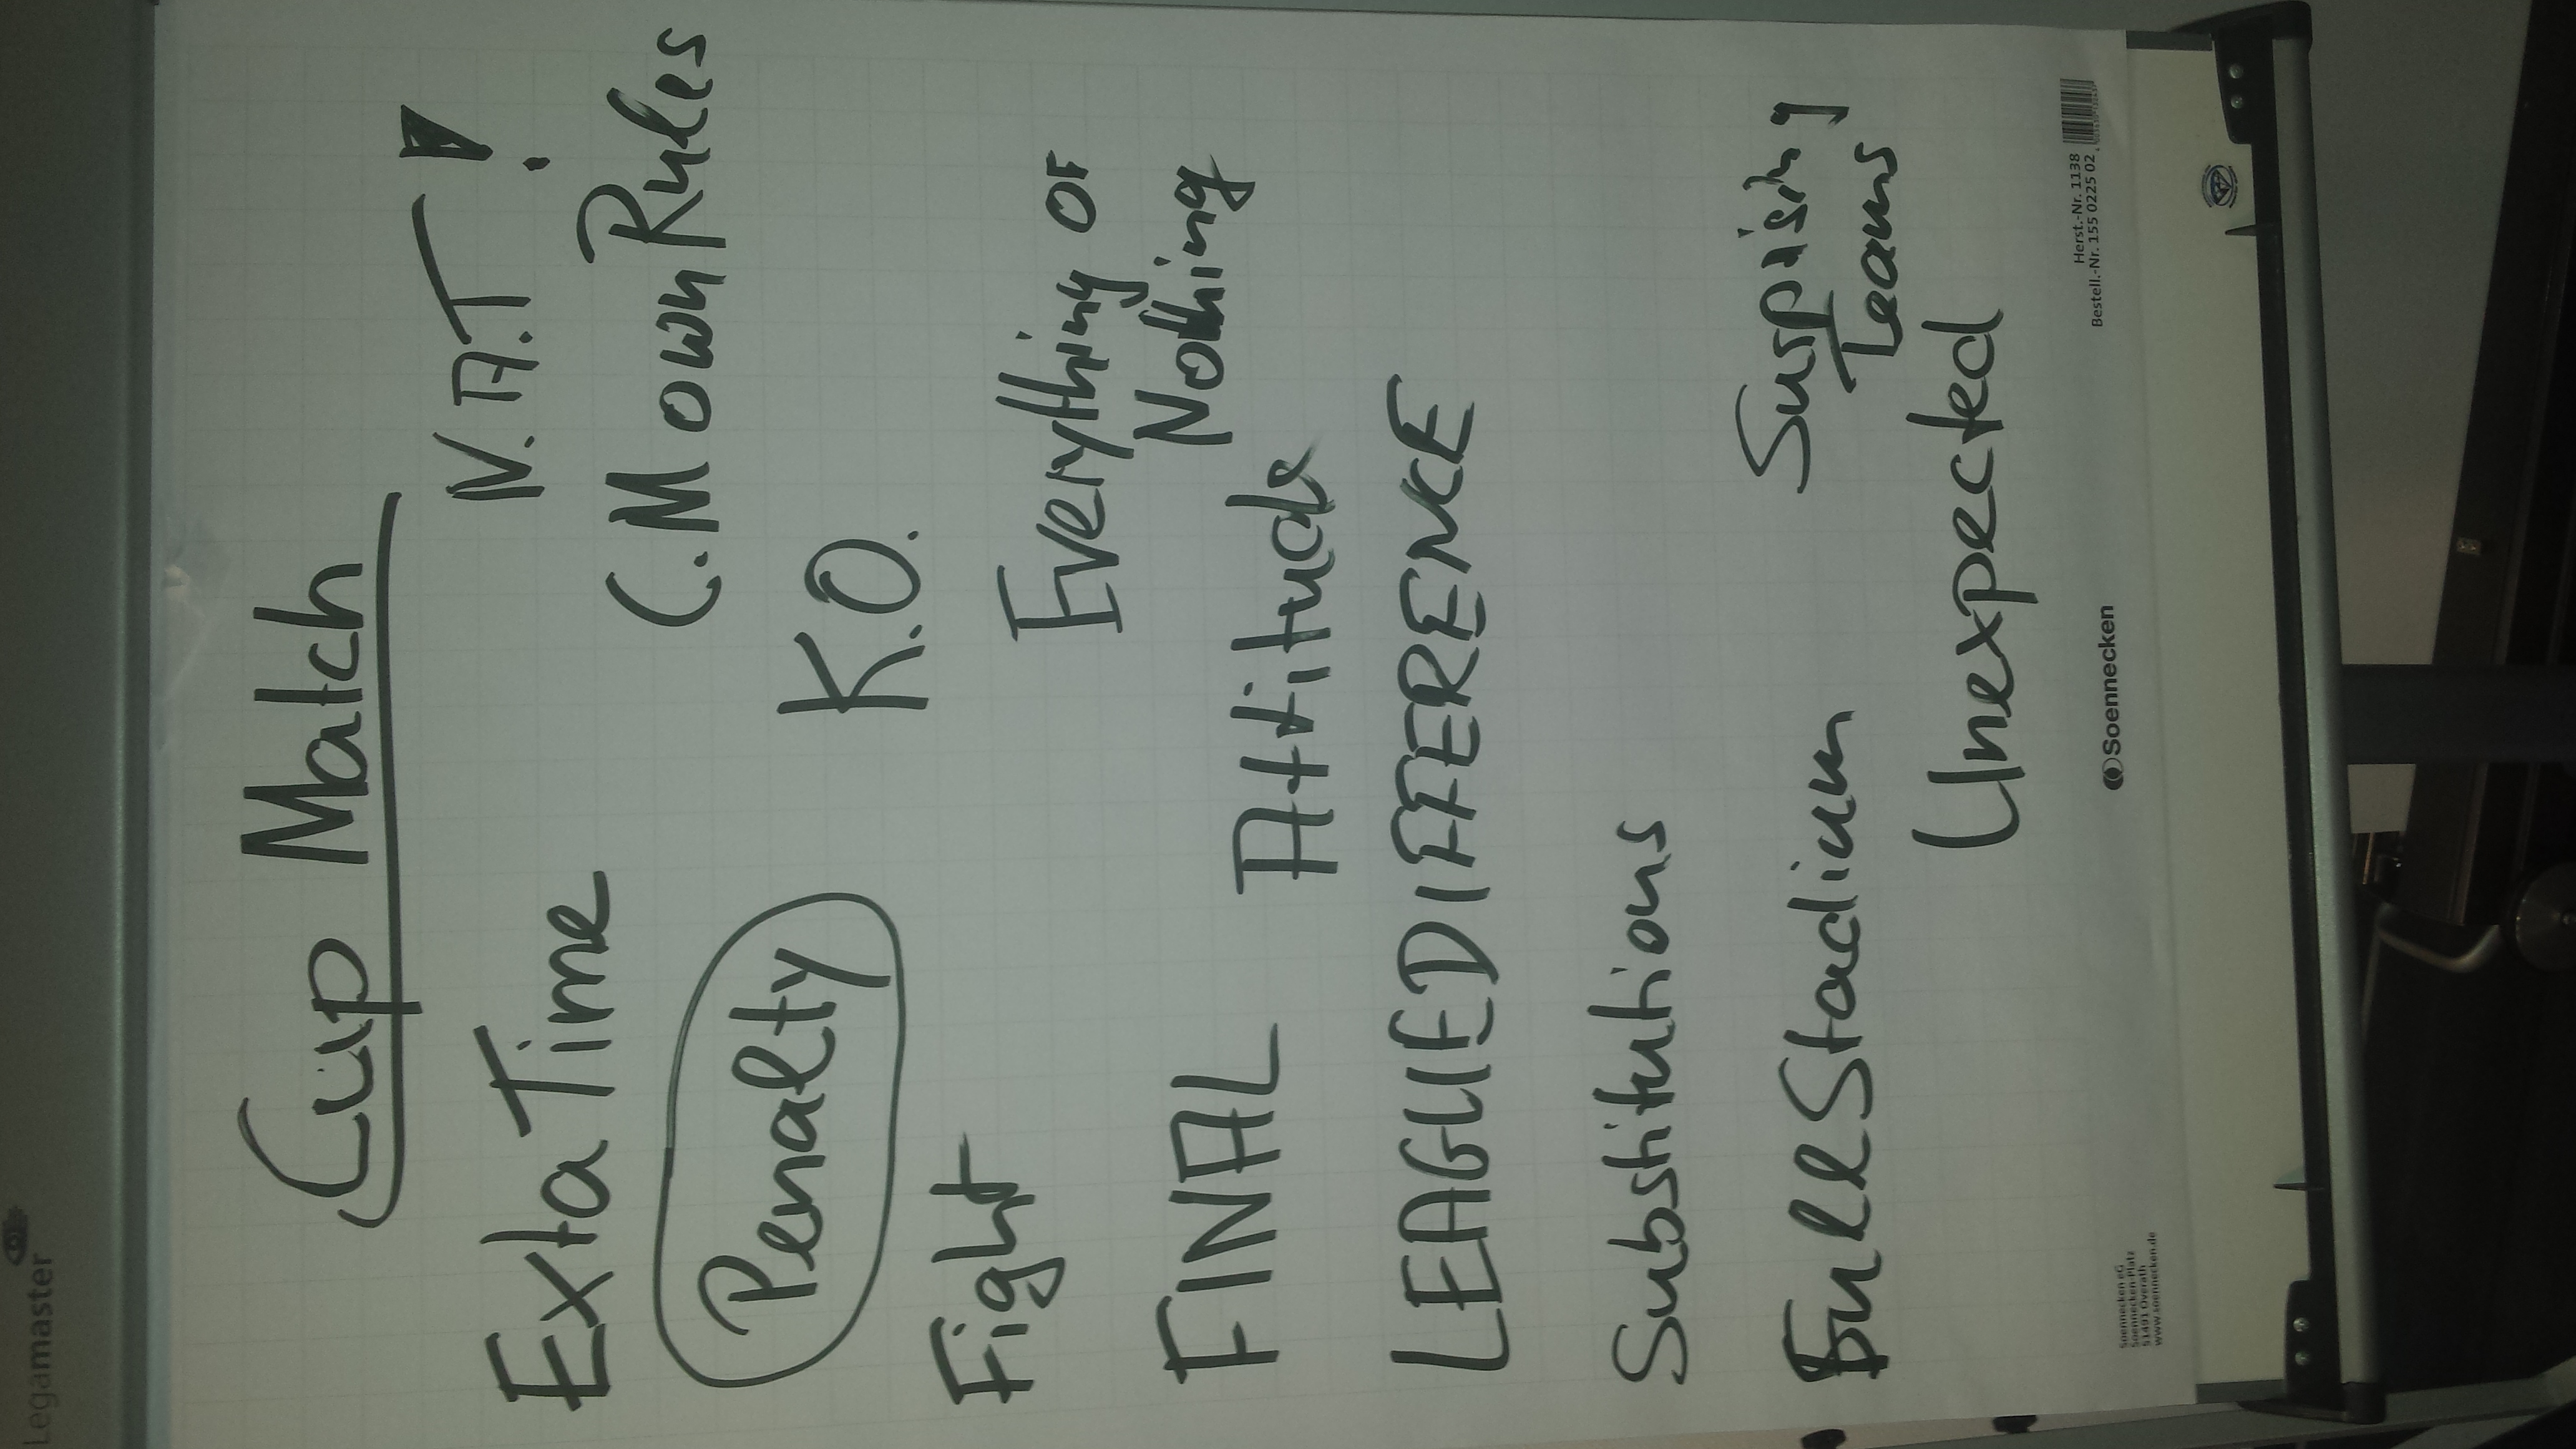 Legamaster
Cup Match
N.A.T!
Exta Time
C.M own Rules
Penalty
K.O.
Fight
Everything or
Nothing
FINAL
Attitude
LEAGUE DIFFERENCE
Substitutions
Surpising
Full Stadium
Teams
Unexpected
Soennecken eG
Soennecken-Platz
51491 Overath
www.soennecken.de
Soennecken
Herst.-Nr. 1138
Bestell.-Nr. 155 0225 02